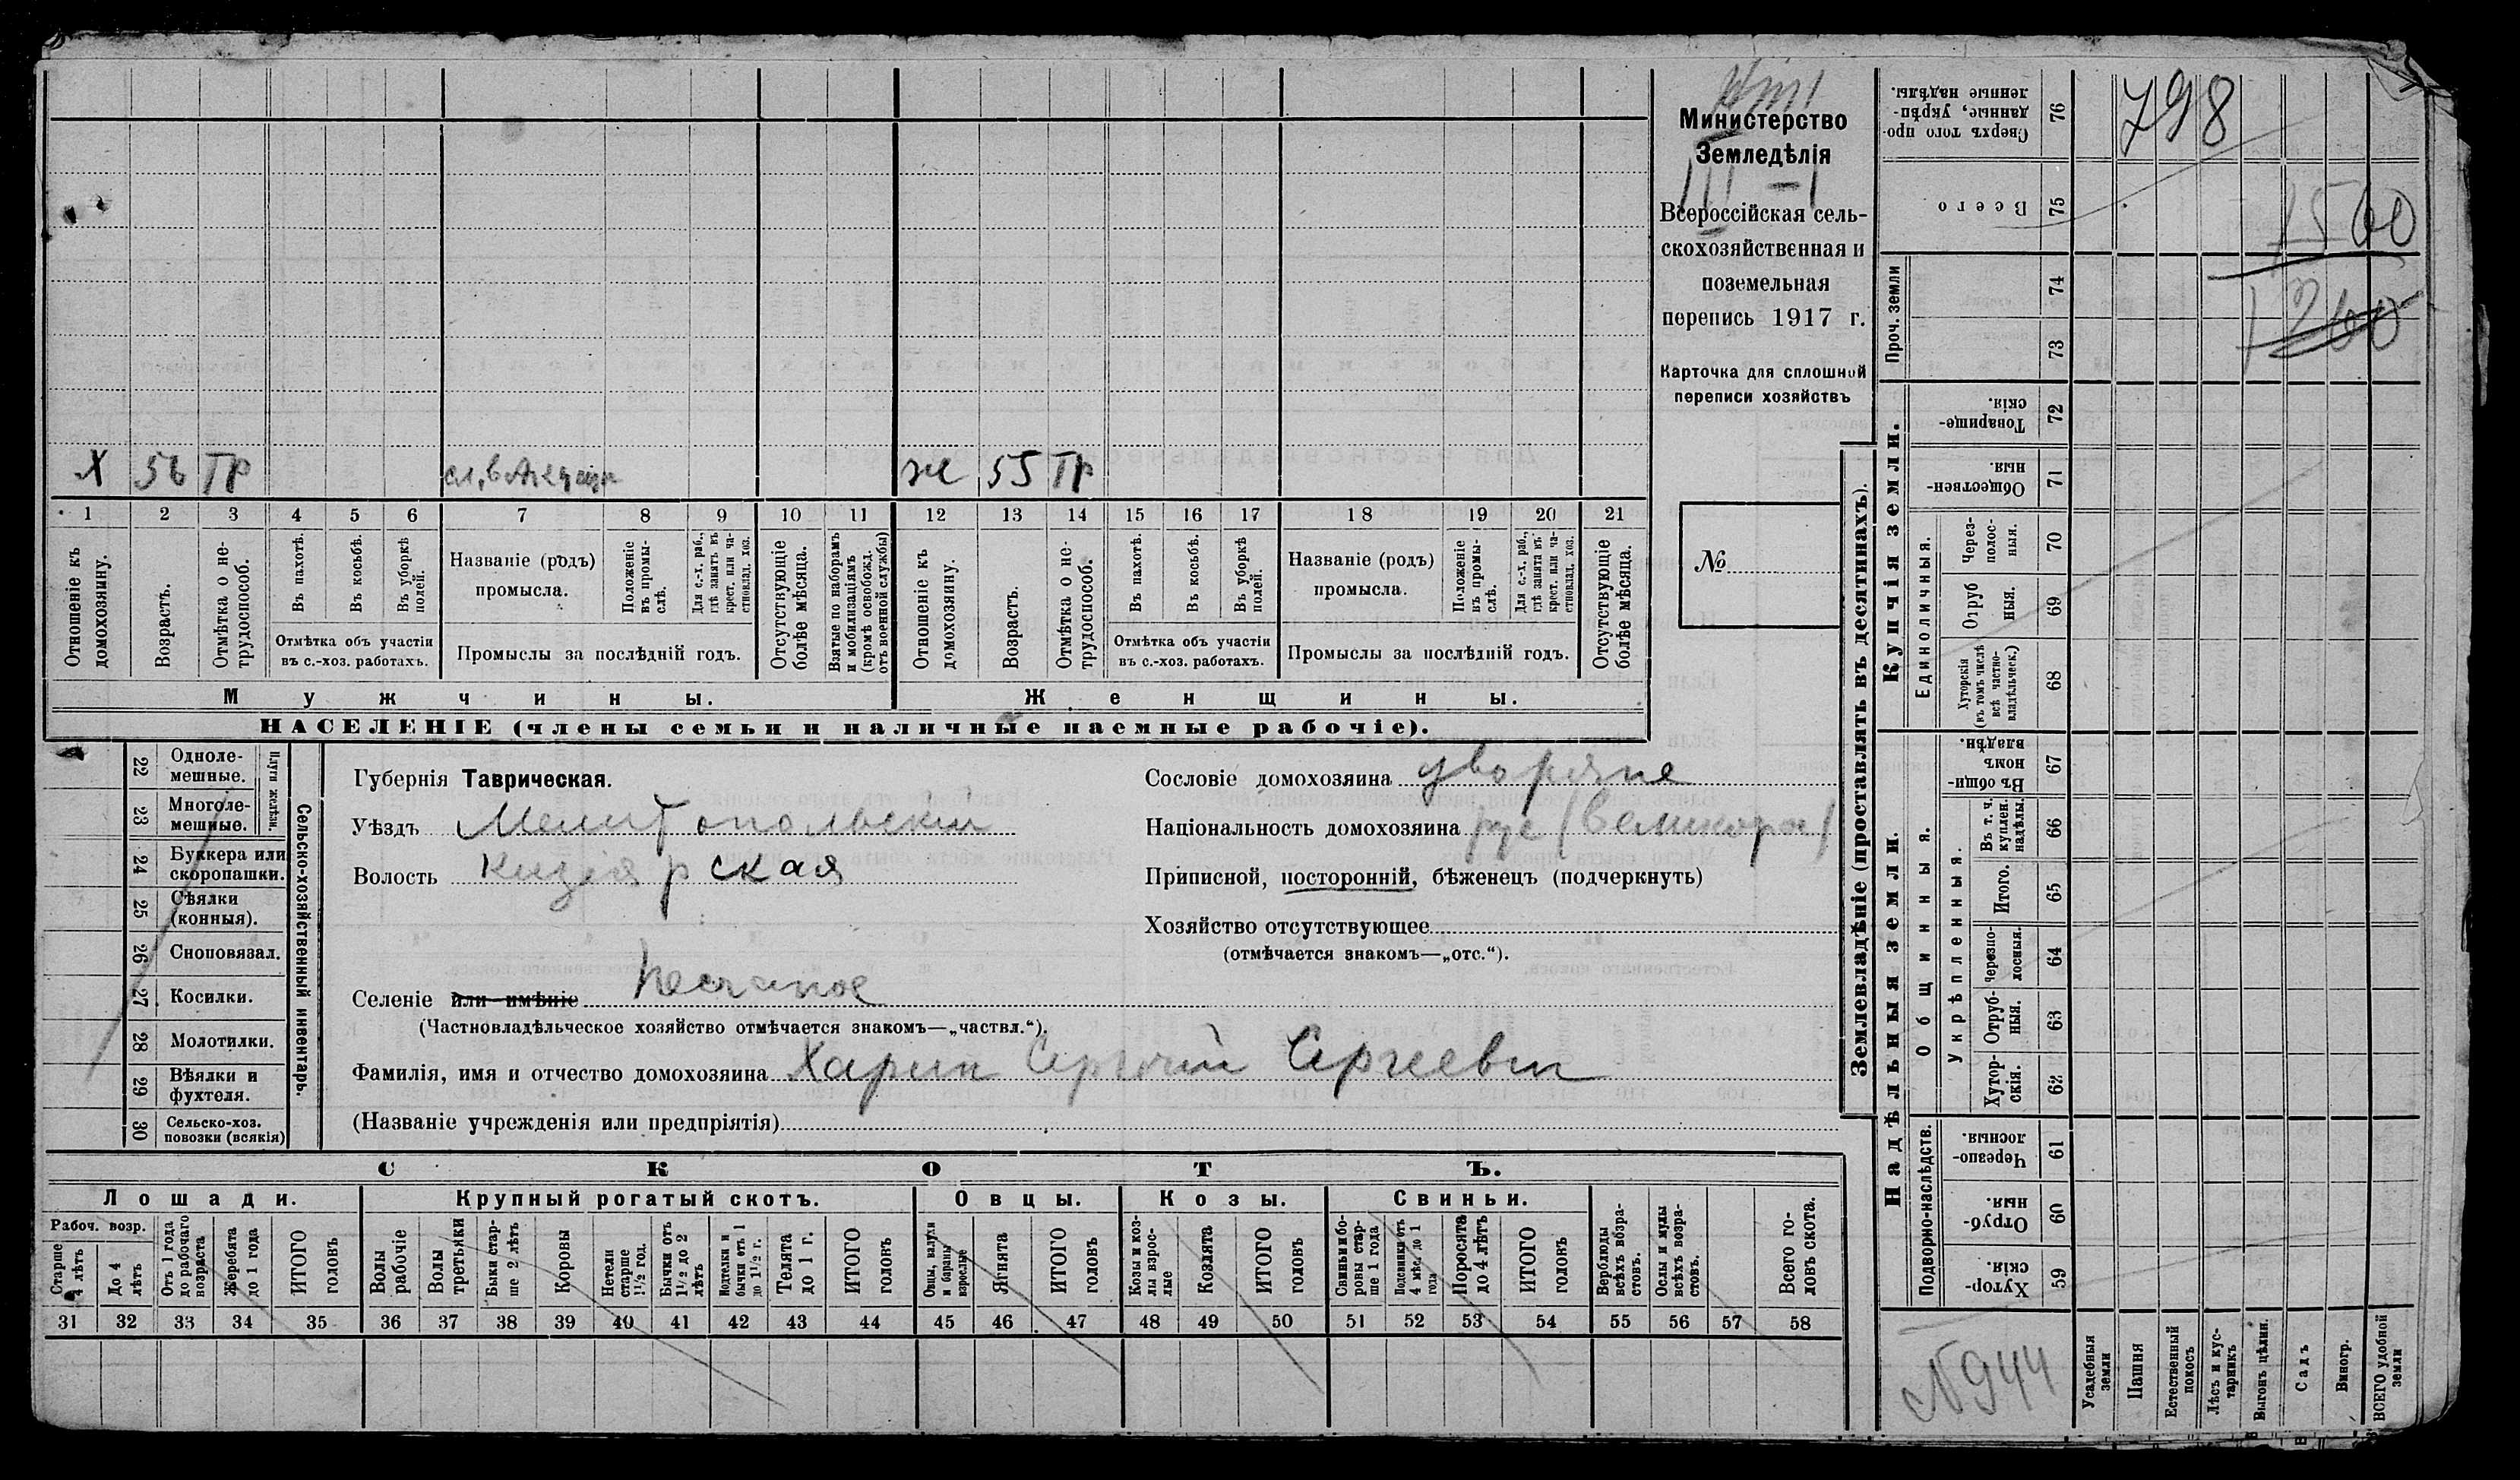 Министерство
Земледѣлія
III — I
Всероссійская сель-
скохозяйственная и
поземельная
перепись 1917 г.
Карточка для сплошной
переписи хозяйствъ
№
Х 56 ТР
ж 55 ТР
1 2 3 4 5 6 7 8 9 10 11 12 13 14 15 16 17 18 19 20 21
Отношеніе къ домохозяину.
Возрастъ.
Отмѣтка о не-трудоспособ.
Въ пахотѣ.
Въ косьбѣ.
Въ уборкѣ полей.
Отмѣтка объ участіи
въ с.-хоз. работахъ.
Названіе (родъ)
промысла.
Положеніе въ промы-слѣ.
Для с.-х. раб., гдѣ занятъ въ крест. или ча-стновлад. хоз.
Промыслы за послѣдній годъ.
Отсутствующіе болѣе мѣсяца.
Взятые по наборамъ и мобилизаціямъ (кромѣ освобожд. отъ военной службы)
Отношеніе къ домохозяину.
Возрастъ.
Отмѣтка о не-трудоспособ.
Въ пахотѣ.
Въ косьбѣ.
Въ уборкѣ полей.
Отмѣтка объ участіи
въ с.-хоз. работахъ.
Названіе (родъ)
промысла.
Положеніе въ промы-слѣ.
Для с.-х. раб., гдѣ занята въ крест. или ча-стновлад. хоз.
Промыслы за послѣдній годъ.
Отсутствующіе болѣе мѣсяца.
Мужчины.
Женщины.
НАСЕЛЕНІЕ (члены семьи и наличные наемные рабочіе).
22 Одноле-мешные.
23 Многоле-мешные.
Плуги желѣзн.
24 Буккера или скоропашки.
25 Сѣялки (конныя).
26 Сноповязал.
27 Косилки.
28 Молотилки.
29 Вѣялки и фухтеля.
30 Сельско-хоз. повозки (всякія)
Сельско-хозяйственный инвентарь.
Губернія Таврическая.
Уѣздъ Мелитопольский
Волость Кизіярская
Селеніе или имѣніе Песчаное
(Частновладѣльческое хозяйство отмѣчается знакомъ—„частвл.“).
Фамилія, имя и отчество домохозяина Харин Сергей Сергеевич
(Названіе учрежденія или предпріятія)
Сословіе домохозяина дворяне
Національность домохозяина рус (великорос)
Приписной, посторонній, бѣженецъ (подчеркнуть)
Хозяйство отсутствующее
(отмѣчается знакомъ—„отс.“).
СКОТЪ.
Лошади. Крупный рогатый скотъ. Овцы. Козы. Свиньи.
Рабоч. возр.
Старше 4 лѣтъ
До 4 лѣтъ
Отъ 1 года до рабочаго возраста
Жеребята до 1 года
ИТОГО головъ
Волы рабочіе
Волы третьяки
Быки стар-ше 2 лѣтъ
Коровы
Нетели старше 1½ год.
Бычки отъ 1½ до 2 лѣтъ
Подтелки и бычки отъ 1 до 1½ г.
Телята до 1 г.
ИТОГО головъ
Овцы, валухи и бараны взрослые
Ягнята
ИТОГО головъ
Козы и коз-лы взрос-лые
Козлята
ИТОГО головъ
Свиньи и бо-ровы стар-ше 1 года
Подсвинки отъ 4 мѣс. до 1 года
Поросята до 4 лѣтъ
ИТОГО головъ
Верблюды всѣхъ возра-стовъ.
Ослы и мулы всѣхъ возра-стовъ.
Всего го-ловъ скота.
31 32 33 34 35 36 37 38 39 40 41 42 43 44 45 46 47 48 49 50 51 52 53 54 55 56 57 58
Землевладѣніе (проставлять въ десятинахъ).
Купчія земли.
Надѣльныя земли.
76 Сверхъ того про-данные, укрѣп-ленные надѣлы.
75 Всего
Проч. земли
74
73
72 Товарище-скія.
71 Обществен-ныя.
Единоличныя.
70 Через-полос-ныя.
69 Отруб ныя.
68 Хуторскія (въ томъ числѣ всѣ частно-владѣльческ.)
Общинныя.
67 Въ общи номъ владѣн.
66 Въ т. ч. куплен. надѣлы.
Укрѣпленныя.
65 Итого.
64 Черезпо-лосныя.
63 Отруб-ныя.
62 Хутор-скія.
Подворно-наслѣдств.
61 Черезпо-лосныя.
60 Отруб-ныя.
59 Хутор-скія.
798
1560
1260
N 944
Усадебныя земли
Пашня
Естественный покосъ
Лѣсъ и кус-тарникъ
Выгонъ цѣлин.
Садъ
Виногр.
ВСЕГО удобной земли